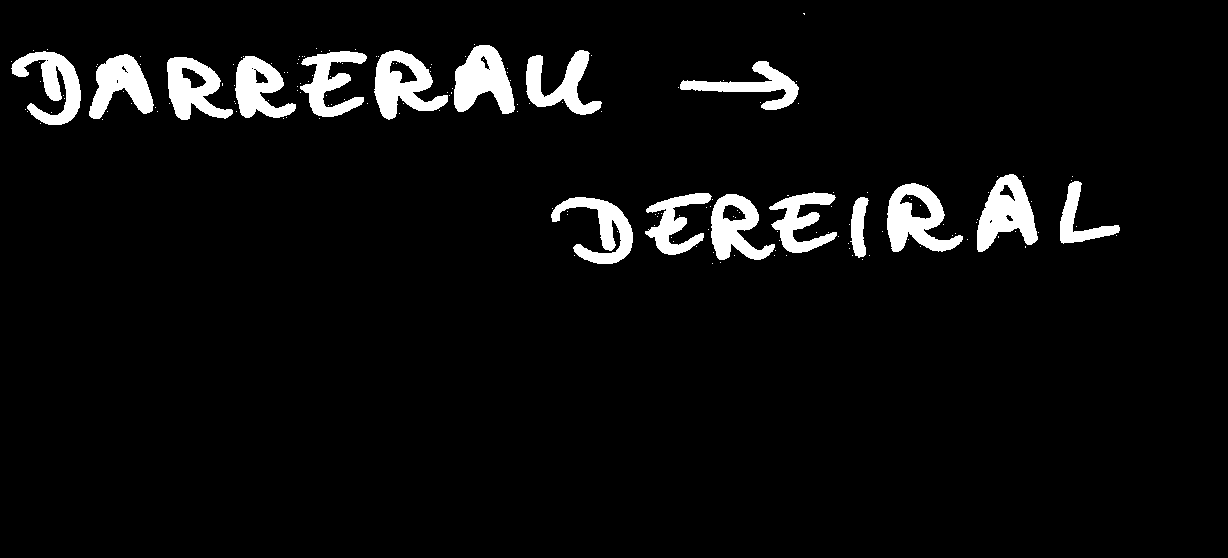 DARRERAU →
DEREIRAL